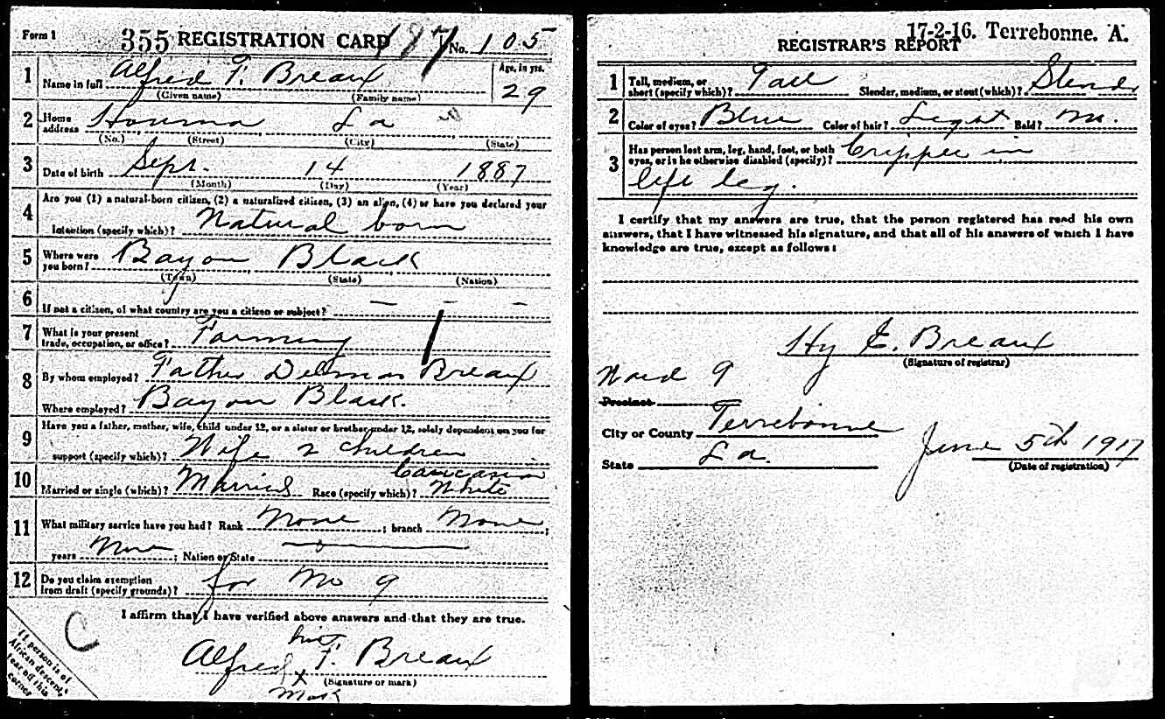 Form 1 355 REGISTRATION CARD 187 No. 105
1 Name in full Alfred F. Breaux Age, in yrs. 29
(Given name) (Family name)
2 Home address Houma La
(No.) (Street) (City) (State)
3 Date of birth Sept. 14 1887
(Month) (Day) (Year)
4 Are you (1) a natural-born citizen, (2) a naturalized citizen, (3) an alien, (4) or have you declared your
intention (specify which)? Natural born
5 Where were you born? Bayou Black
(Town) (State) (Nation)
6 If not a citizen, of what country are you a citizen or subject? – – –
7 What is your present trade, occupation, or office? Farming
8 By whom employed? Father Breaux
Where employed? Bayou Black.
9 Have you a father, mother, wife, child under 12, or a sister or brother under 12, solely dependent on you for
support (specify which)? Wife 2 children
Caucasian
10 Married or single (which)? Married Race (specify which)? White
11 What military service have you had? Rank None ; branch None ;
years None ; Nation or State
12 Do you claim exemption from draft (specify grounds)? for No 9
I affirm that I have verified above answers and that they are true.
his
Alfred F. Breaux
x (Signature or mark)
mark
C
If person is of
African descent,
tear off this
corner
17-2-16. Terrebonne. A.
REGISTRAR'S REPORT
1 Tall, medium, or short (specify which)? Tall Slender, medium, or stout (which)? Slender
2 Color of eyes? Blue Color of hair? Light Bald? no.
3 Has person lost arm, leg, hand, foot, or both
eyes, or is he otherwise disabled (specify)? Cripple in
left leg.
I certify that my answers are true, that the person registered has read his own
answers, that I have witnessed his signature, and that all of his answers of which I have
knowledge are true, except as follows:
Hy E. Breaux
(Signature of registrar)
Ward 9
Precinct
City or County Terrebonne
State La. June 5th 1917
(Date of registration)